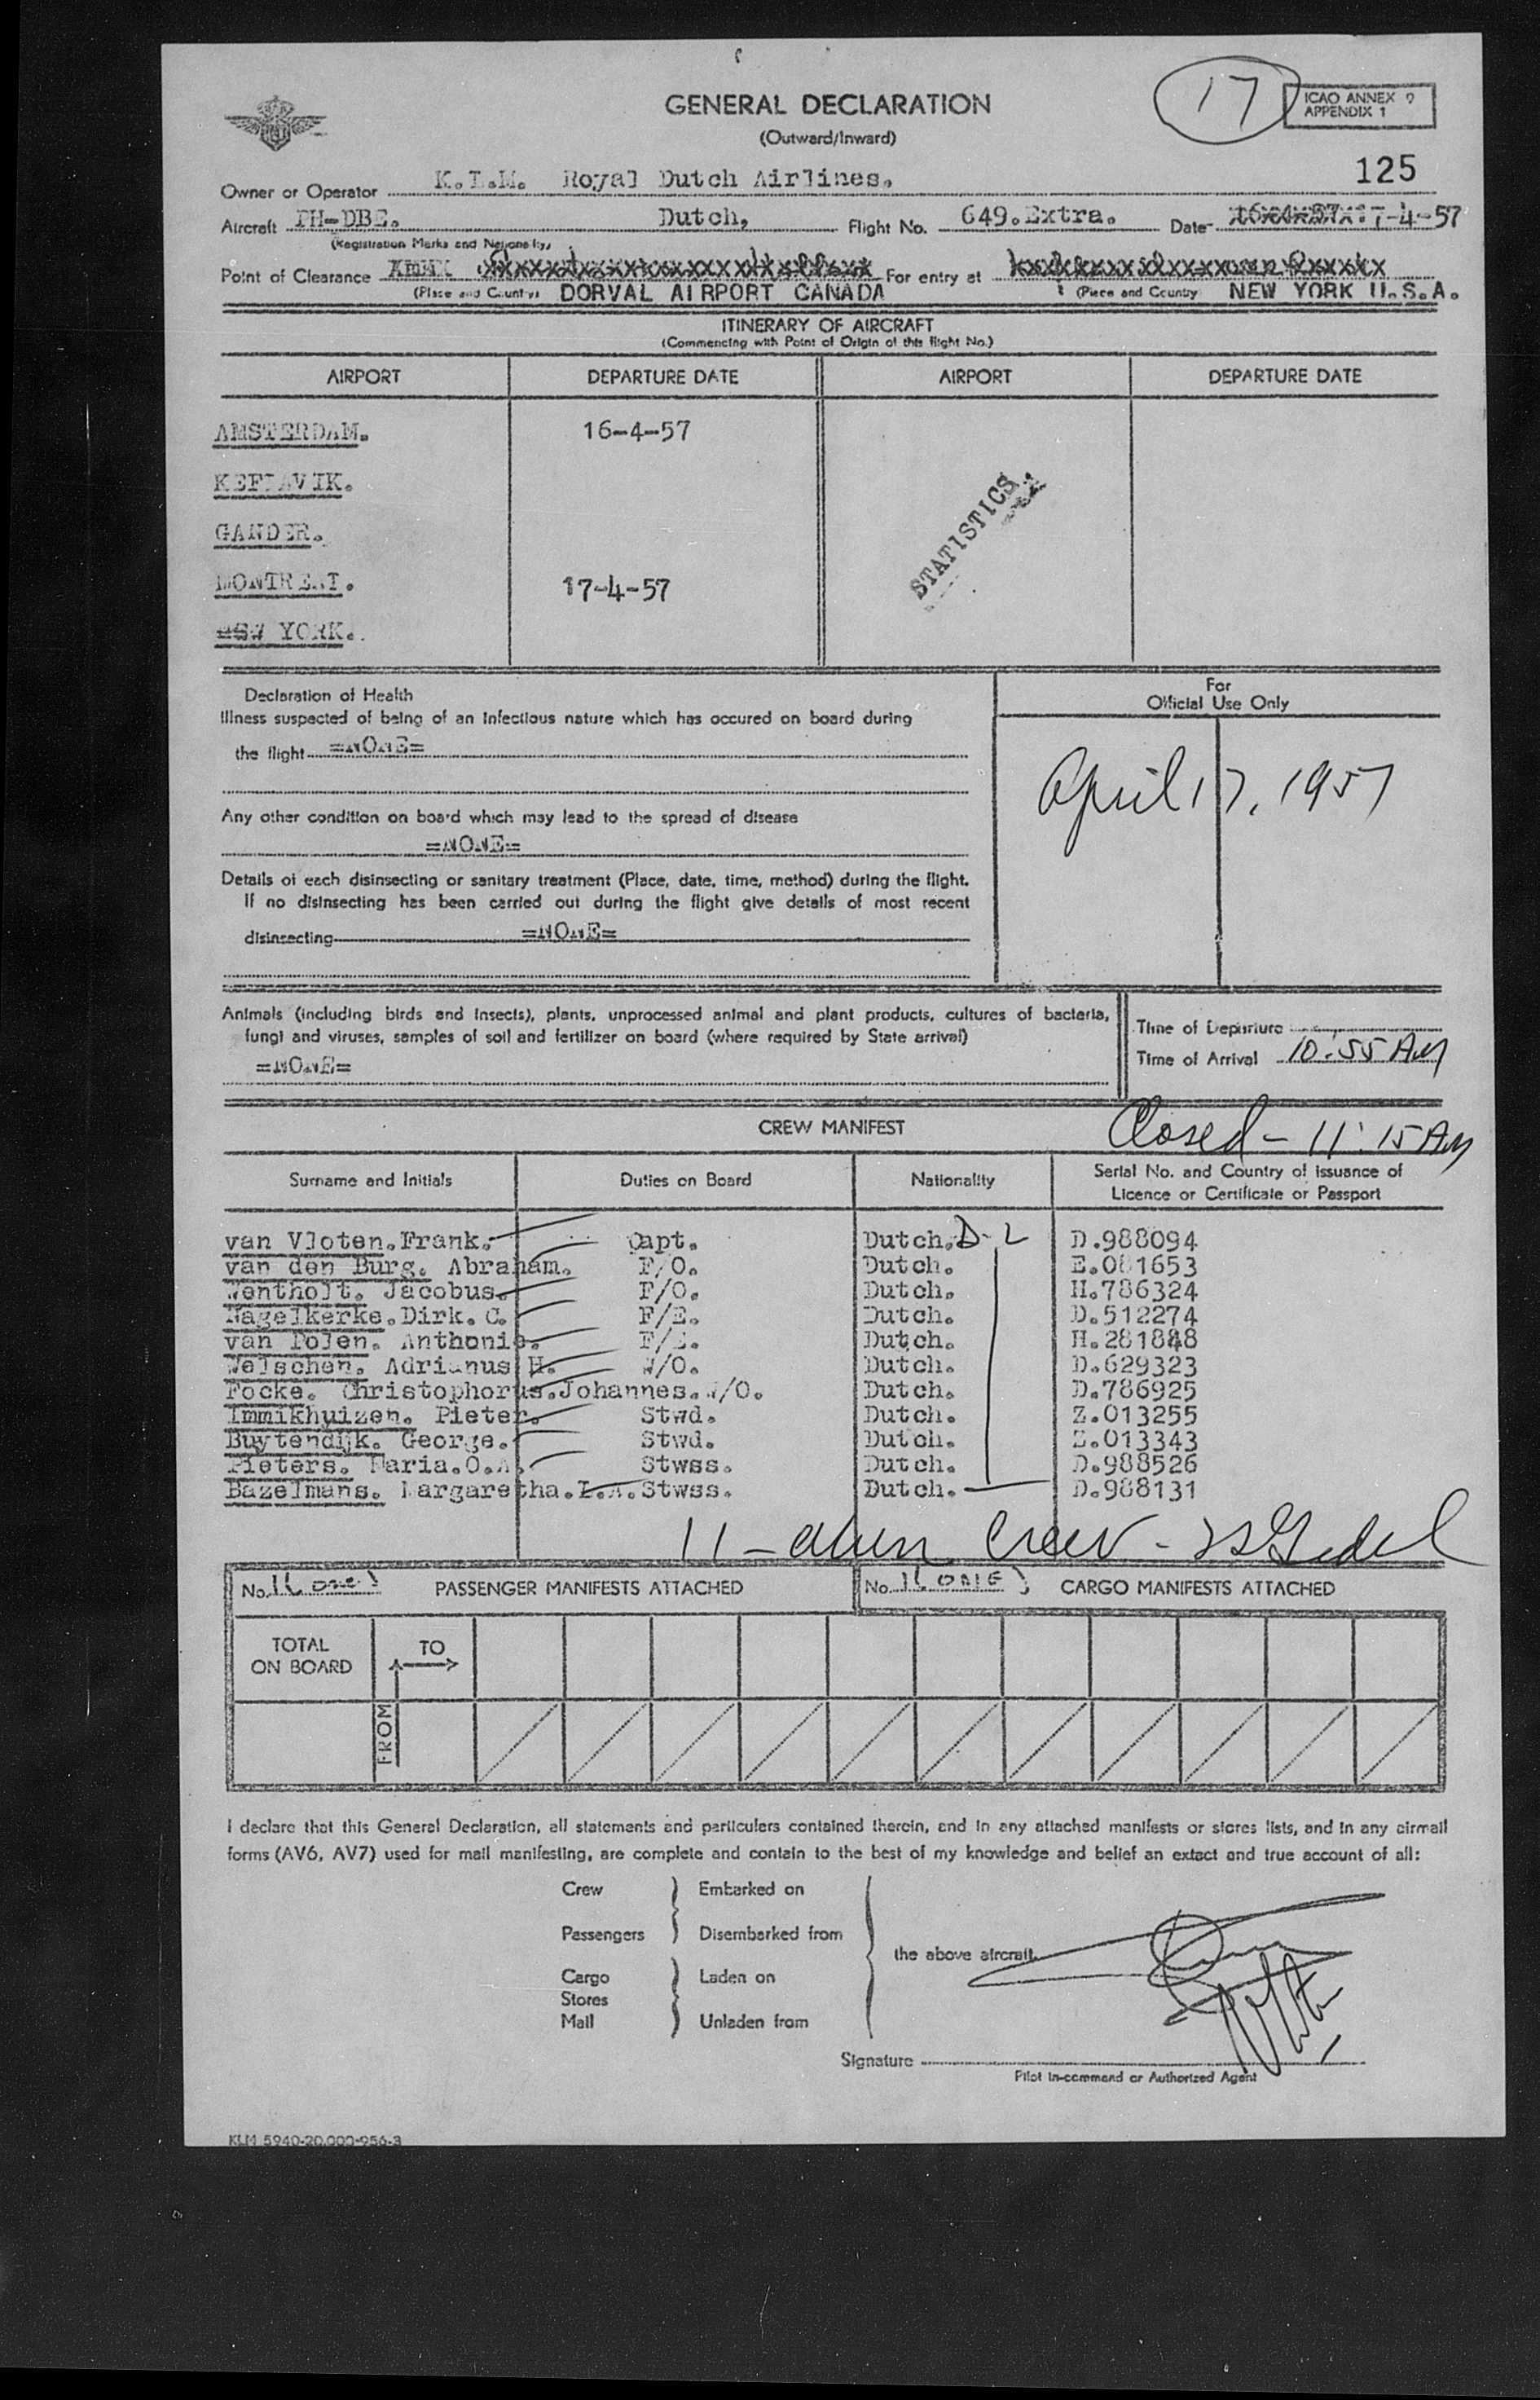 17
ICAO ANNEX 9
APPENDIX 1
GENERAL DECLARATION
(Outward/Inward)
125
Owner or Operator K.L.M. Royal Dutch Airlines.
Aircraft PH-DBE. Dutch, Flight No. 649.Extra. Date 17-4-57
(Registration Marks and Nationality)
Point of Clearance For entry at
(Place and Country) DORVAL AIRPORT CANADA (Place and Country) NEW YORK U.S.A.
ITINERARY OF AIRCRAFT
(Commencing with Point of Origin of this flight No.)
AIRPORT DEPARTURE DATE AIRPORT DEPARTURE DATE
AMSTERDAM. 16-4-57
KEFLAVIK.
GANDER.
MONTREAL. 17-4-57
NEW YORK.
STATISTICS
Declaration of Health
Illness suspected of being of an infectious nature which has occured on board during
the flight =NONE=
Any other condition on board which may lead to the spread of disease
=NONE=
Details of each disinsecting or sanitary treatment (Place, date, time, method) during the flight.
If no disinsecting has been carried out during the flight give details of most recent
disinsecting =NONE=
For
Official Use Only
April 17, 1957
Animals (including birds and insects), plants, unprocessed animal and plant products, cultures of bacteria,
fungi and viruses, samples of soil and fertilizer on board (where required by State arrival)
=NONE=
Time of Departure
Time of Arrival 10:55 AM
Closed - 11:15 AM
CREW MANIFEST
Surname and Initials Duties on Board Nationality Serial No. and Country of issuance of
Licence or Certificate or Passport
van Vloten.Frank. Capt. Dutch. D-2 D.988094
van den Burg. Abraham. F/O. Dutch. E.081653
Wentholt. Jacobus. F/O. Dutch. H.786324
Nagelkerke.Dirk. C. F/E. Dutch. D.512274
van Polen. Anthonie. F/E. Dutch. H.281848
Welschen. Adrianus H. W/O. Dutch. D.629323
Focke. Christophorus.Johannes. W/O. Dutch. D.786925
Immikhuizen. Pieter. Stwd. Dutch. Z.013255
Buytendijk. George. Stwd. Dutch. Z.013343
Pieters. Maria.O.A. Stwss. Dutch. D.988526
Bazelmans. Margaretha.L.A. Stwss. Dutch. D.988131
11 - alien Crew -
No. 1(one) PASSENGER MANIFESTS ATTACHED No. 1(ONE) CARGO MANIFESTS ATTACHED
TOTAL
ON BOARD
TO
FROM
I declare that this General Declaration, all statements and particulers contained therein, and in any attached manifests or stores lists, and in any airmail
forms (AV6, AV7) used for mail manifesting, are complete and contain to the best of my knowledge and belief an extact and true account of all:
Crew Embarked on
Passengers Disembarked from
the above aircraft.
Cargo Laden on
Stores
Mail Unladen from
Signature
Pilot in-command or Authorized Agent
KLM 5940-20.000-956-3